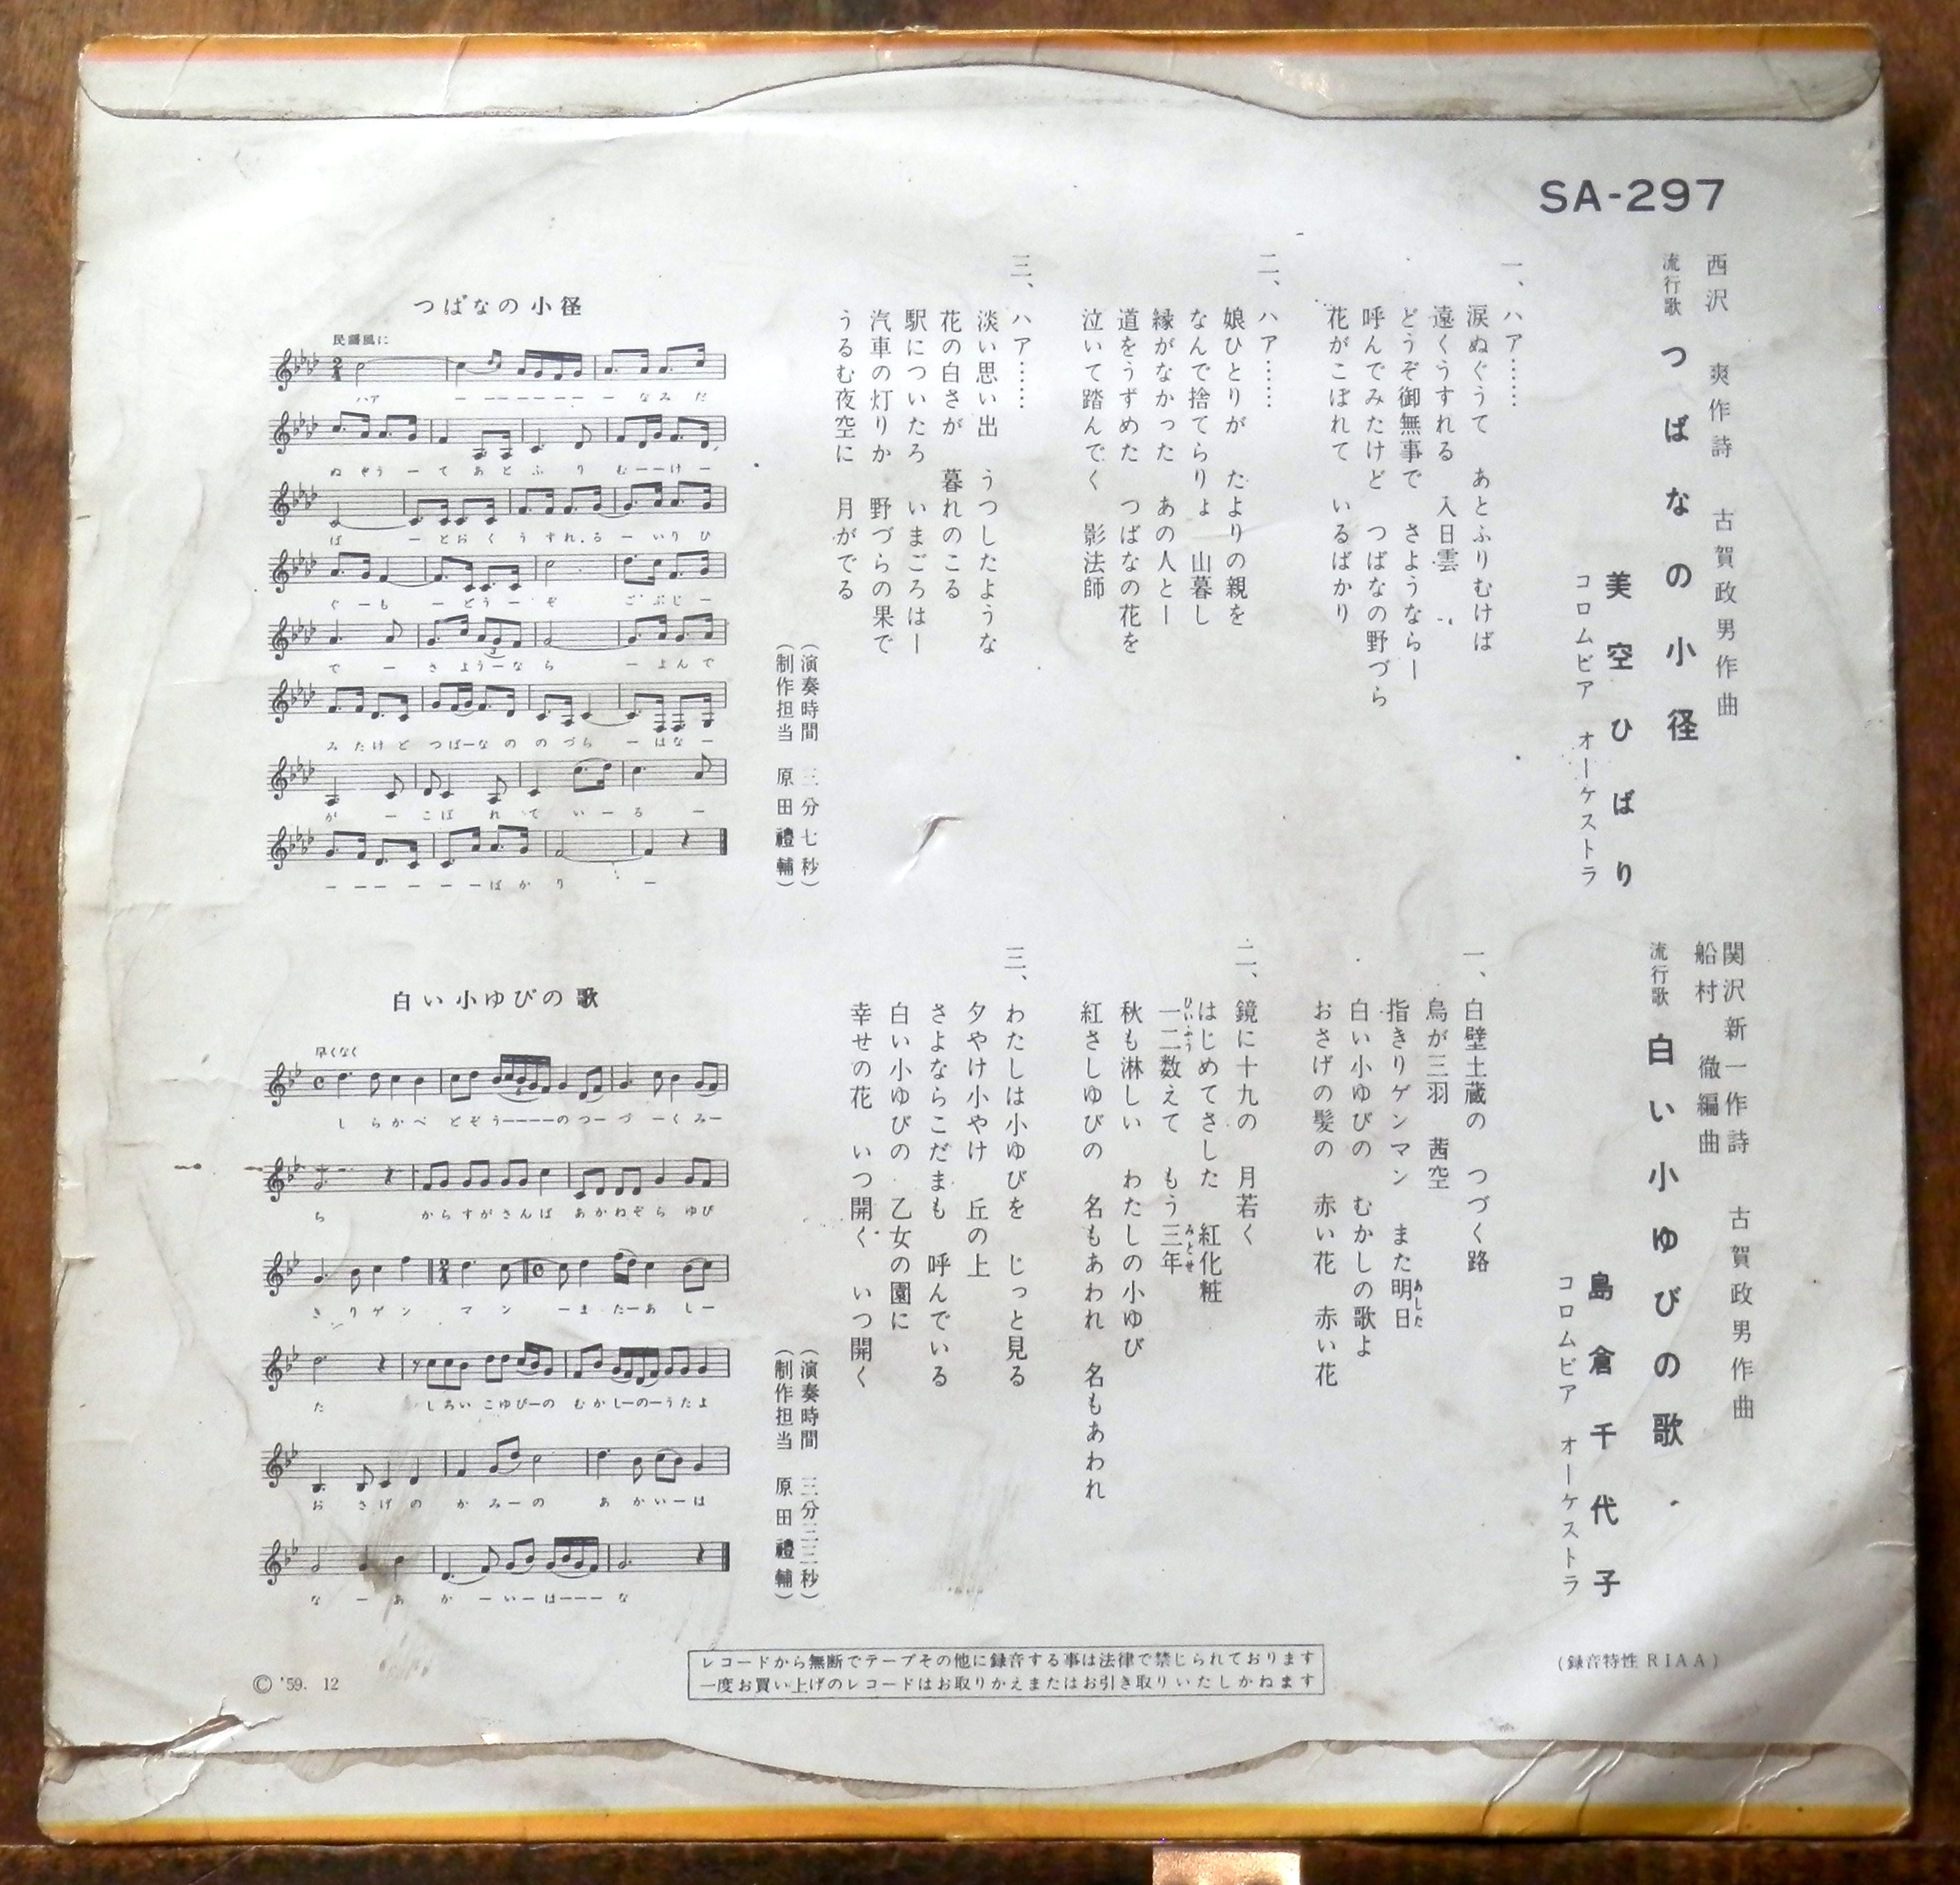 SA-297
西沢 爽作詩 古賀政男作曲
流行歌 つばなの小径
美空ひばり
コロムビア オーケストラ
一、ハア……
涙ぬぐうて あとふりむけば
遠くうすれる 入日雲
どうぞ御無事で さようならー
呼んでみたけど つばなの野づら
花がこぼれて いるばかり
二、ハア……
娘ひとりが たよりの親を
なんで捨てらりょ 山暮し
縁がなかった あの人とー
道をうずめた つばなの花を
泣いて踏んでく 影法師
三、ハア……
淡い思い出 うつしたような
花の白さが 暮れのこる
駅についたろ いまごろはー
汽車の灯りか 野づらの果で
うるむ夜空に 月がでる
(演奏時間 三分七秒)
(制作担当 原田禮輔)
つばなの小径
民謡風に
ハア ー ー ー ー ー ー ー なみだ
ぬぐう ー て あと ふ り む ー ー け ー
ば ー とおく うすれ.る ー いりひ
ぐ ー も ー どう ー ぞ ごぶじ ー
で ー さ よう ー なら ー よんで
みたけど つば ー な の のづら ー はな ー
が ー こぼ れ て い ー る ー
ー ー ー ー ー ー ー ばかり ー
関沢新一作詩 古賀政男作曲
船村 徹編曲
流行歌 白い小ゆびの歌
島倉千代子
コロムビア オーケストラ
一、白壁土蔵の つづく路
烏が三羽 茜空
指きりゲンマン また明日
あした
白い小ゆびの むかしの歌よ
おさげの髪の 赤い花 赤い花
二、鏡に十九の 月若く
はじめてさした 紅化粧
一二数えて もう三年
ひいふう みとせ
秋も淋しい わたしの小ゆび
紅さしゆびの 名もあわれ 名もあわれ
三、わたしは小ゆびを じっと見る
夕やけ小やけ 丘の上
さよならこだまも 呼んでいる
白い小ゆびの 乙女の園に
幸せの花 いつ開く いつ開く
(演奏時間 三分三三秒)
(制作担当 原田禮輔)
白い小ゆびの歌
早くなく
しらかべ どぞう ー ー ー ー の つ ー づ ー くみ ー
ち からすがさんば あかねぞら ゆび
きりゲン マン ー ま た ー あ し ー
た しろい こゆび ー の むかし ー の ー うたよ
おさげの かみ ー の あかい ー は
な ー あ か ー い ー は ー ー ー な
(録音特性 RIAA)
レコードから無断でテープその他に録音する事は法律で禁じられております
一度お買い上げのレコードはお取りかえまたはお引き取りいたしかねます
© '59. 12